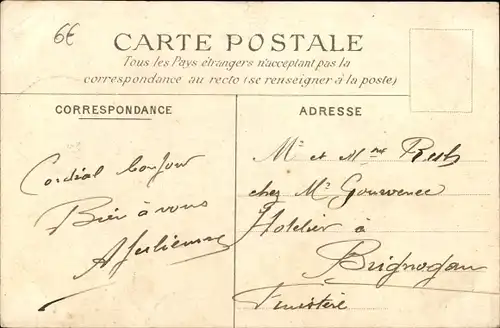 6€
CARTE POSTALE
Tous les Pays étrangers n'acceptant pas la
correspondance au recto (se renseigner à la poste)
CORRESPONDANCE
Cordial bonjour
Bien à vous
ADRESSE
Mr et Mme
chez Mr
Hotelier à
Brignogan
Finistère